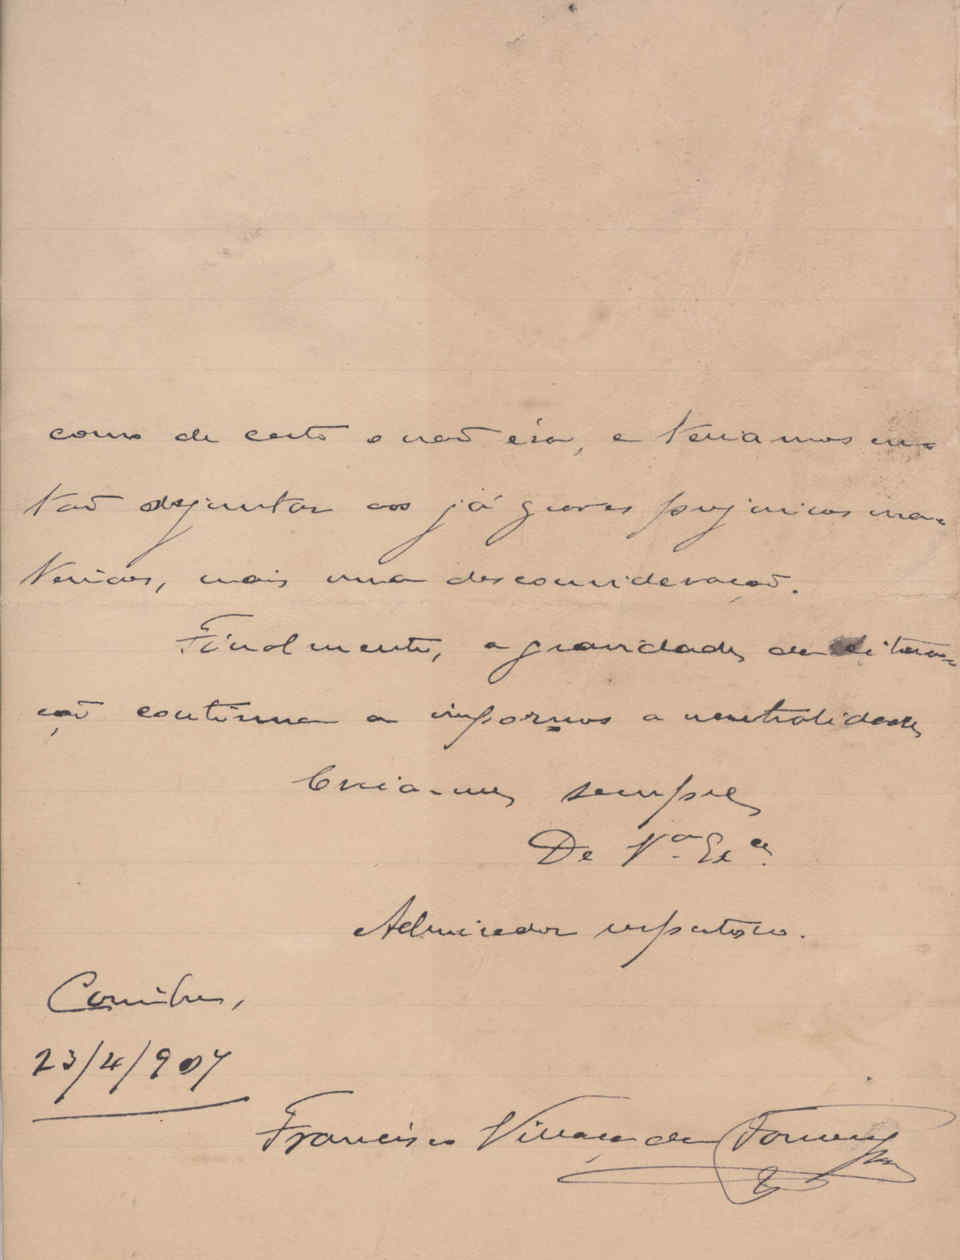 como de certo o não éra, e teriamos en-
tão de juntar aos já graves prejuizos ma-
teriaes, mais uma desconsideração.
Finalmente, a gravidade da situa-
ção continua a impor-nos a neutralidade
Creia-me sempre
De V.ª Ex.ª
Admirador respeitoso.
Coimbra,
23/4/907
Francisco Villaça da Fonseca